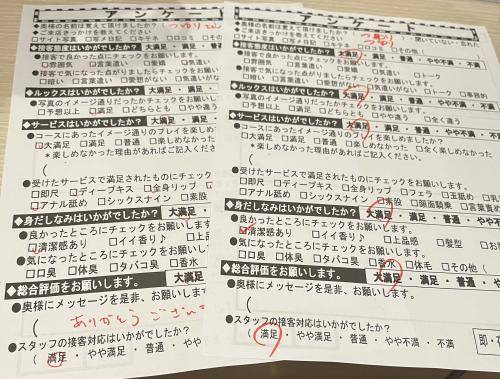 アンケート
◆奥様の名前は覚えて頂けましたか？
◆ご来店きっかけを教えて下さい。
□サイト写真 □写メ日記 □キテネ □口コミ
◆接客態度はいかがでしたか？ 大満足・満足・
●接客で良かった点にチェックをお願いします。
□雰囲気 □言葉遣い □愛嬌 □気遣い
●接客で気になった点がありましたらチェックお願い
□暗い □言葉遣い □愛想がない □気遣いがない
◆ルックスはいかがでしたか？ 大満足・満足・
●写真のイメージ通りだったかチェックをお願いします。
□予想以上 □満足 □どちらとも □やや違う
◆サービスはいかがでしたか？ 大満足・満足・
●コースにあったイメージ通りのプレイを楽しめま
□大満足 □満足 □普通 □楽しめなかった
＊楽しめなかった理由があればご記入ください。
(
●受けたサービスで満足されたものにチェック
□即尺 □ディープキス □全身リップ
□アナル舐め □シックスナイン □素股
◆身だしなみはいかがでしたか？ 大満足・
●良かったところにチェックをお願いします。
□清潔感あり □イイ香り♪
●気になったところにチェックをお願いします。
□口臭 □体臭 □タバコ臭 □香水
◆総合評価をお願いします。 大満足
●奥様にメッセージを是非、お願いします。
( ありがとう
●スタッフの接客対応はいかがでしたか？
( 満足・やや満足・普通・やや
アンケート
◆奥様の名前は覚えて頂けましたか？
◆ご来店きっかけを教えて下さい。
□サイト写真 □写メ日記 □キテネ □口コミ □その他（
◆接客態度はいかがでしたか？ 大満足・満足・普通・やや不満・不満
●接客で良かった点にチェックをお願いします。
□雰囲気 □言葉遣い □愛嬌 □気遣い □トーク
●接客で気になった点がありましたらチェックお願いします。
□暗い □言葉遣い □愛想がない □気遣いがない □トーク □事務的
◆ルックスはいかがでしたか？ 大満足・満足・普通・やや不満・不満
●写真のイメージ通りだったかチェックをお願いします。
□予想以上 □満足 □どちらとも □やや違う □全く違う
◆サービスはいかがでしたか？ 大満足・満足・普通・やや不満・不満
●コースにあったイメージ通りのプレイを楽しめましたか
□大満足 □満足 □普通 □楽しめなかった □全く楽しめなかった
＊楽しめなかった理由があればご記入ください。
(
●受けたサービスで満足されたものにチェックをお願いします。
□即尺 □ディープキス □全身リップ □フェラ □玉舐め
□アナル舐め □シックスナイン □素股 □顔面騎乗 □言葉責め
◆身だしなみはいかがでしたか？ 大満足・満足・普通・やや不満・
●良かったところにチェックをお願いします。
□清潔感あり □イイ香り♪ □上品感 □髪型 □お
●気になったところにチェックをお願いします。
□口臭 □体臭 □タバコ臭 □香水 □体毛 □その他（
◆総合評価をお願いします。 大満足・満足・普通・やや不満
●奥様にメッセージを是非、お願いします。
(
●スタッフの接客対応はいかがでしたか？
( 満足・やや満足・普通・やや不満・不満
即・